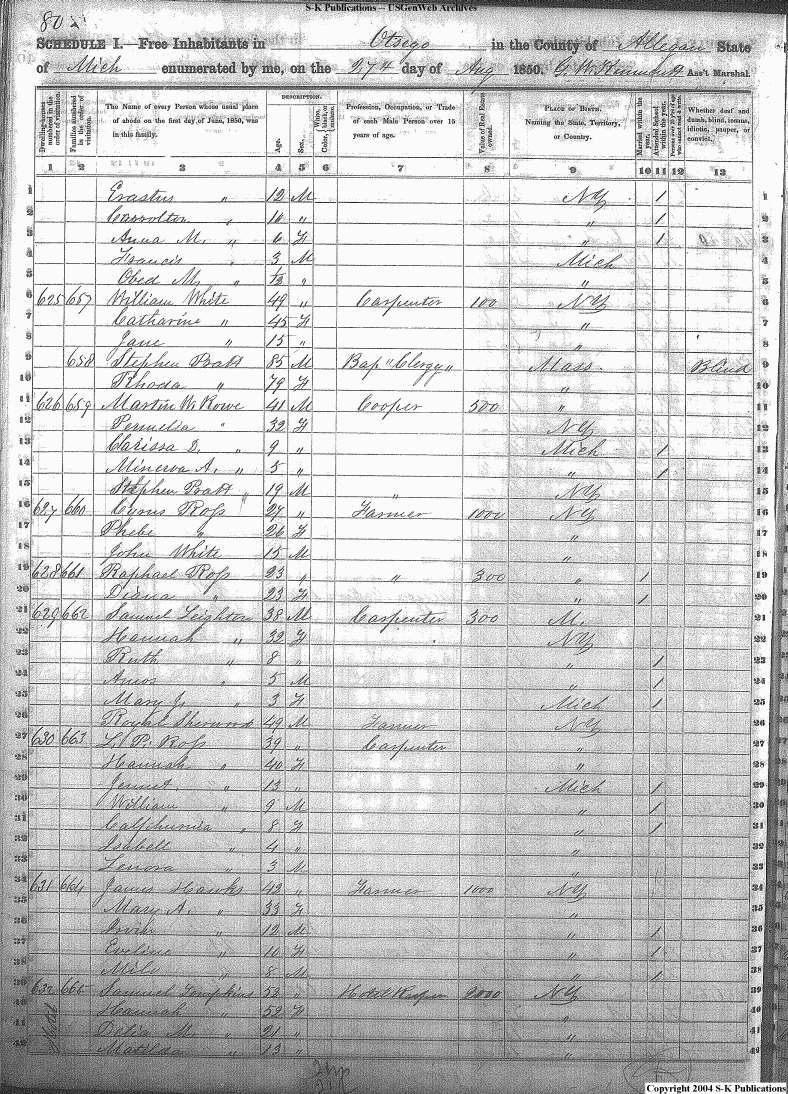 S-K Publications – USGenWeb Archives
80
SCHEDULE I.—Free Inhabitants in Otsego in the County of Allegan State
of Mich enumerated by me, on the 27th day of Aug 1850. Ass't Marshal.
Dwelling-houses numbered in the order of visitation.
Families numbered in the order of visitation.
The Name of every Person whose usual place of abode on the first day of June, 1850, was in this family.
DESCRIPTION.
Age.
Sex.
Color, White, black, or mulatto.
Profession, Occupation, or Trade of each Male Person over 15 years of age.
Value of Real Estate owned.
PLACE OF BIRTH. Naming the State, Territory, or Country.
Married within the year.
Attended School within the year.
Persons over 20 y'rs of age who cannot read & write.
Whether deaf and dumb, blind, insane, idiotic, pauper, or convict.
1 2 3 4 5 6 7 8 9 10 11 12 13
1 Erastus " 12 M NY / 1
2 Carrolton " 10 " " / 2
3 Anna M. " 6 F " / 3
4 Francis " 3 M Mich 4
5 Obed M. " 1/12 " " 5
6 625 657 William White 49 " Carpenter 100 NY 6
7 Catharine " 45 F " 7
8 Jane " 15 " " 8
9 658 Stephen Pratt 85 M Bap "Clergy" Mass. Blind 9
10 Rhoda " 79 F " 10
11 626 659 Martin W. Rowe 41 M Cooper 500 " 11
12 Permelia " 32 F NY 12
13 Clarissa D. " 9 " Mich / 13
14 Minerva A. " 5 " " / 14
15 Stephen Pratt " 19 M " NY 15
16 627 660 Cyrus Ross 27 " Farmer 1000 NY 16
17 Phebe " 26 F " 17
18 John White 15 M " 18
19 628 661 Raphael Ross 23 " " 300 " / 19
20 Diana " 23 F " / 20
21 629 662 Samuel Leighton 38 M Carpenter 300 M. 21
22 Hannah " 32 F NY 22
23 Ruth " 8 " " / 23
24 Amos " 5 M " / 24
25 Mary J. " 3 F Mich / 25
26 Royal Sherwood 49 M Farmer NY 26
27 630 663 L. P. Ross 39 " Carpenter " 27
28 Hannah " 40 F " 28
29 Jennet. " 13 " Mich / 29
30 William " 9 M " / 30
31 Calphurnia " 8 F " / 31
32 Isabell " 4 " " 32
33 Lenora " 3 M " 33
34 631 664 James Hawks 42 " Farmer 1000 NY 34
35 Mary A. " 33 F " 35
36 Irvin " 12 M " / 36
37 Eveline " 10 F " / 37
38 Milo " 8 M " / 38
39 632 665 Samuel Tompkins 53 " Hotel Keeper 2000 NY 39
40 Hannah " 52 F " 40
41 Hotel Delia M. " 21 " " 41
42 Matilda " 13 " " 42
Copyright 2004 S-K Publications